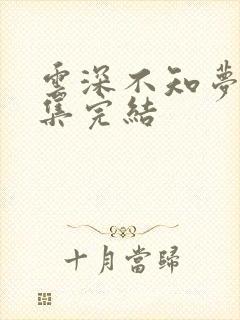 雲深不知夢
集完結
十月當歸